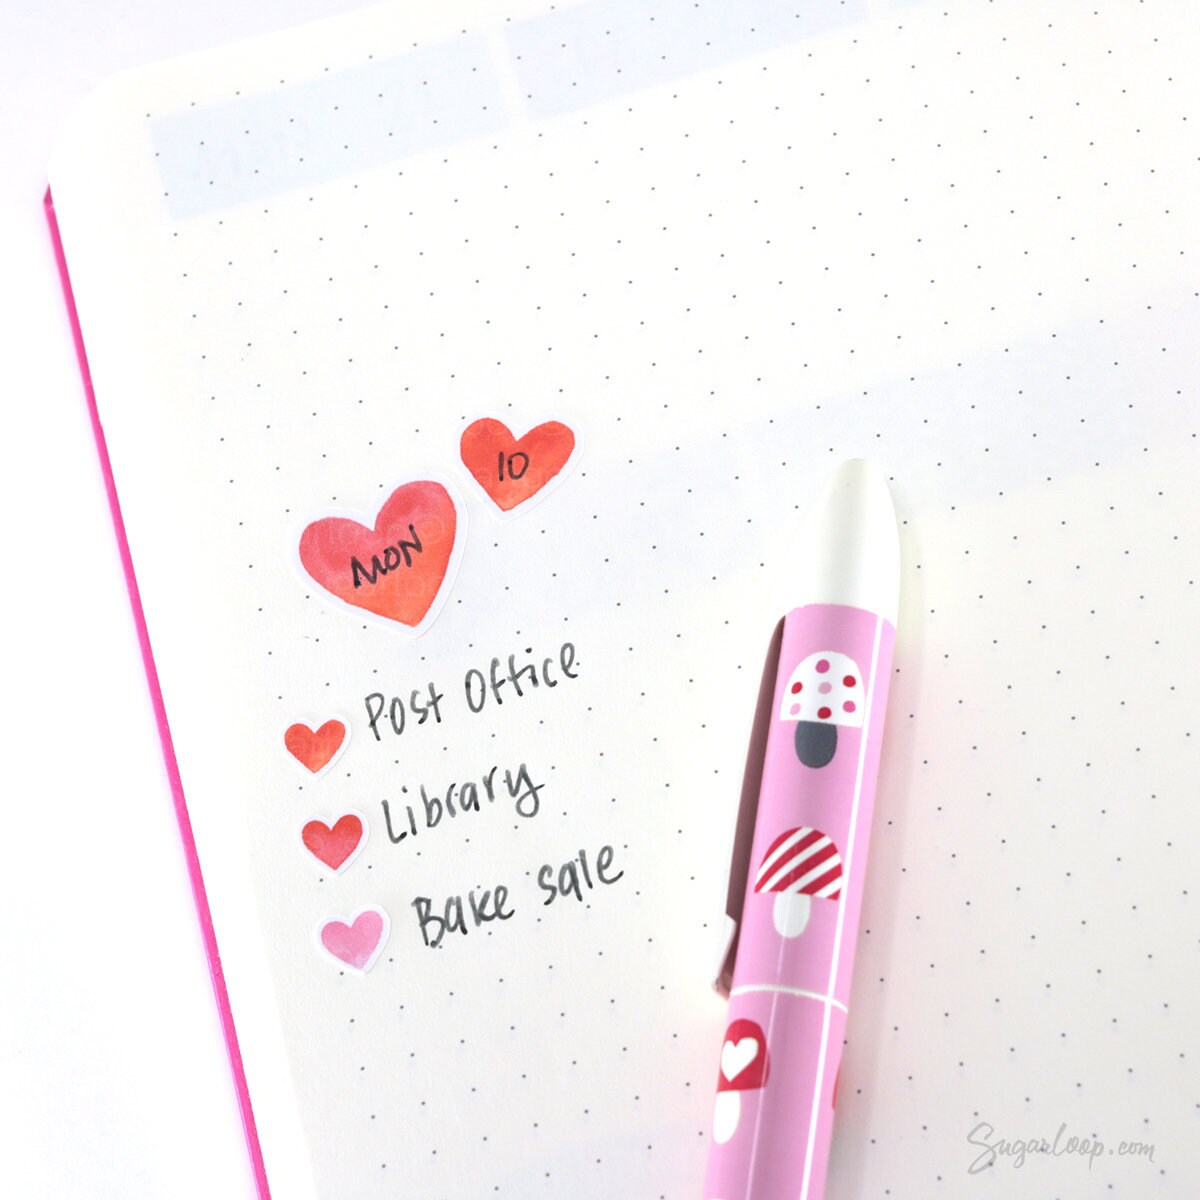 10
MON
Post Office
Library
Bake sale
Sugarloop.com